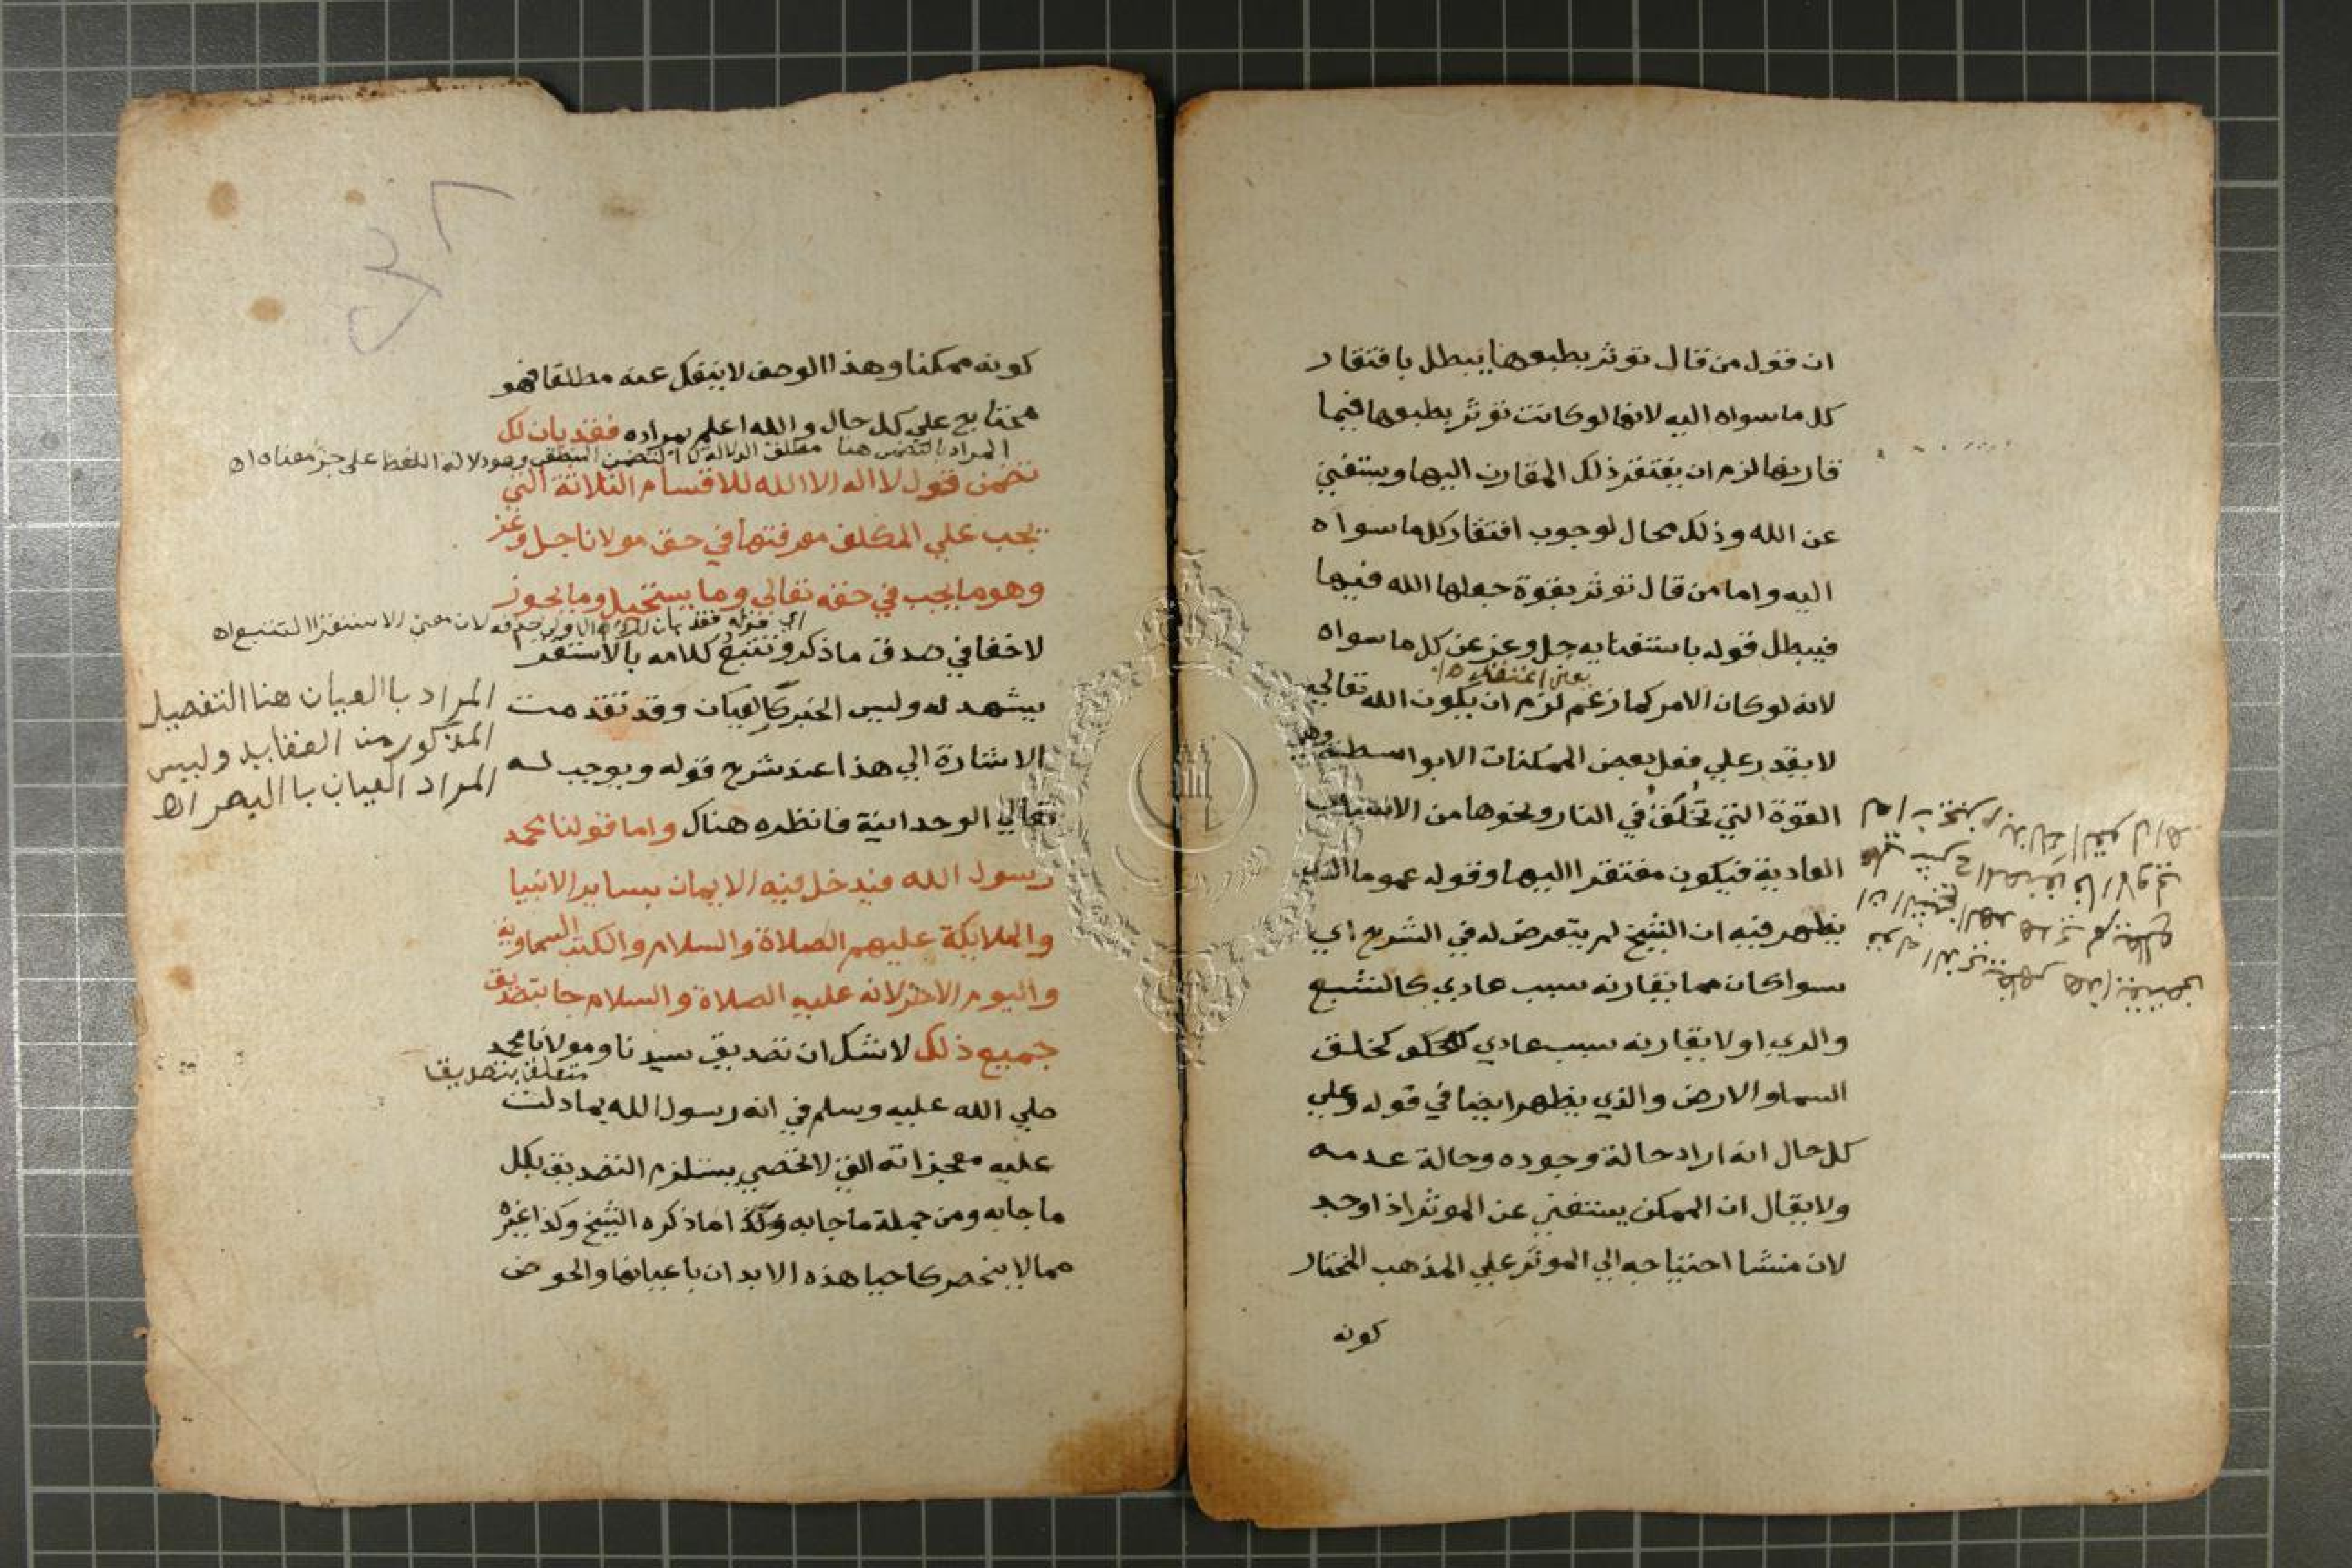 ان قول من قال توثر بطبعها يبطل بافتقار
كل ما سواه اليه لانها لو كانت توثر بطبعها فيما
قارنها لزم ان يفتقر ذلك المقارن اليها ويستغني
عن الله وذلك محال لوجوب افتقار كل ما سواه
اليه واما من قال توثر بقوة جعلها الله فيها
فيبطل قوله باستغنايه جل وعز عن كل ما سواه
لانه لو كان الامر كما زعم لزم ان يكون الله تعالي
لا يقدر علي فعل بعض الممكنات الا بواسطة وهي
القوة التي تخلق في النار ونحوها من الاسباب
العادية فيكون مفتقرا اليها وقوله عموما الذي
يظهر فيه ان الشيخ لم يتعرض له في الشرح اي
سوا كان مما يقارنه سبب عادي كالشبع
والري او لا يقارنه سبب عادي كخلق
السما والارض والذي يظهر ايضا في قوله وعلي
كل حال انه اراد حالة وجوده وحالة عدمه
ولا يقال ان الممكن يستغني عن الموثر اذا وجد
لان منشا احتياجه الي الموثر علي المذهب المختار
كونه
كونه ممكنا وهذا الوصف لا ينفك عنه مطلقا فهو
محتاج علي كل حال والله اعلم بمراده فقد بان لك
المراد بالتضمن هنا مطلق الدلالة لا التضمن المنطقي وهو دلالة اللفظ على جز معناه اه
تضمن قول لا اله الا الله للاقسام الثلاثة التي
يجب علي المكلف معرفتها في حق مولانا جل وعز
وهو ما يجب في حقه تعالي وما يستحيل وما يجوز
لا خفا في صدق ما ذكر وتتبع كلامه بالاستقرا
يشهد له وليس الخبر كالعيان وقد تقدمت
المراد باالعيان هنا التفصيل
المذكور من العقايد وليس
المراد العيان باالبصر اه
الاشارة الي هذا عند شرح قوله ويوجب له
تعالي الوحدانية فانظره هناك واما قولنا محمد
رسول الله فيدخل فيه الايمان بساير الانبيا
والملايكة عليهم الصلاة والسلام والكتب السماوية
واليوم الاخر لانه عليه الصلاة والسلام جا بتصديق
جميع ذلك لا شك ان تصديق سيدنا ومولانا محمد
متعلق بتصديق
صلي الله عليه وسلم في انه رسول الله بما دلت
عليه معجزاته التي لا تحصي يستلزم التصديق بكل
ما جا به ومن جملة ما جا به ما ذكره الشيخ وكذا غيره
مما لا ينحصر كاحيا هذه الابدان باعيانها والحوض